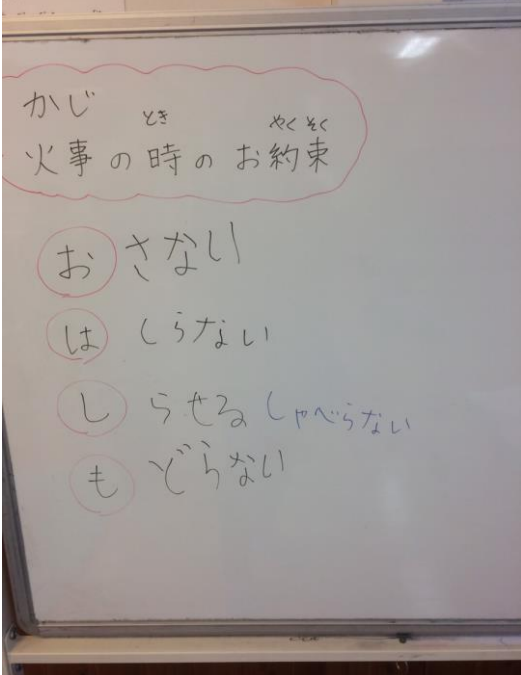 かじ
とき やくそく
火事の時のお約束
おさない
はしらない
しらせる しゃべらない
もどらない